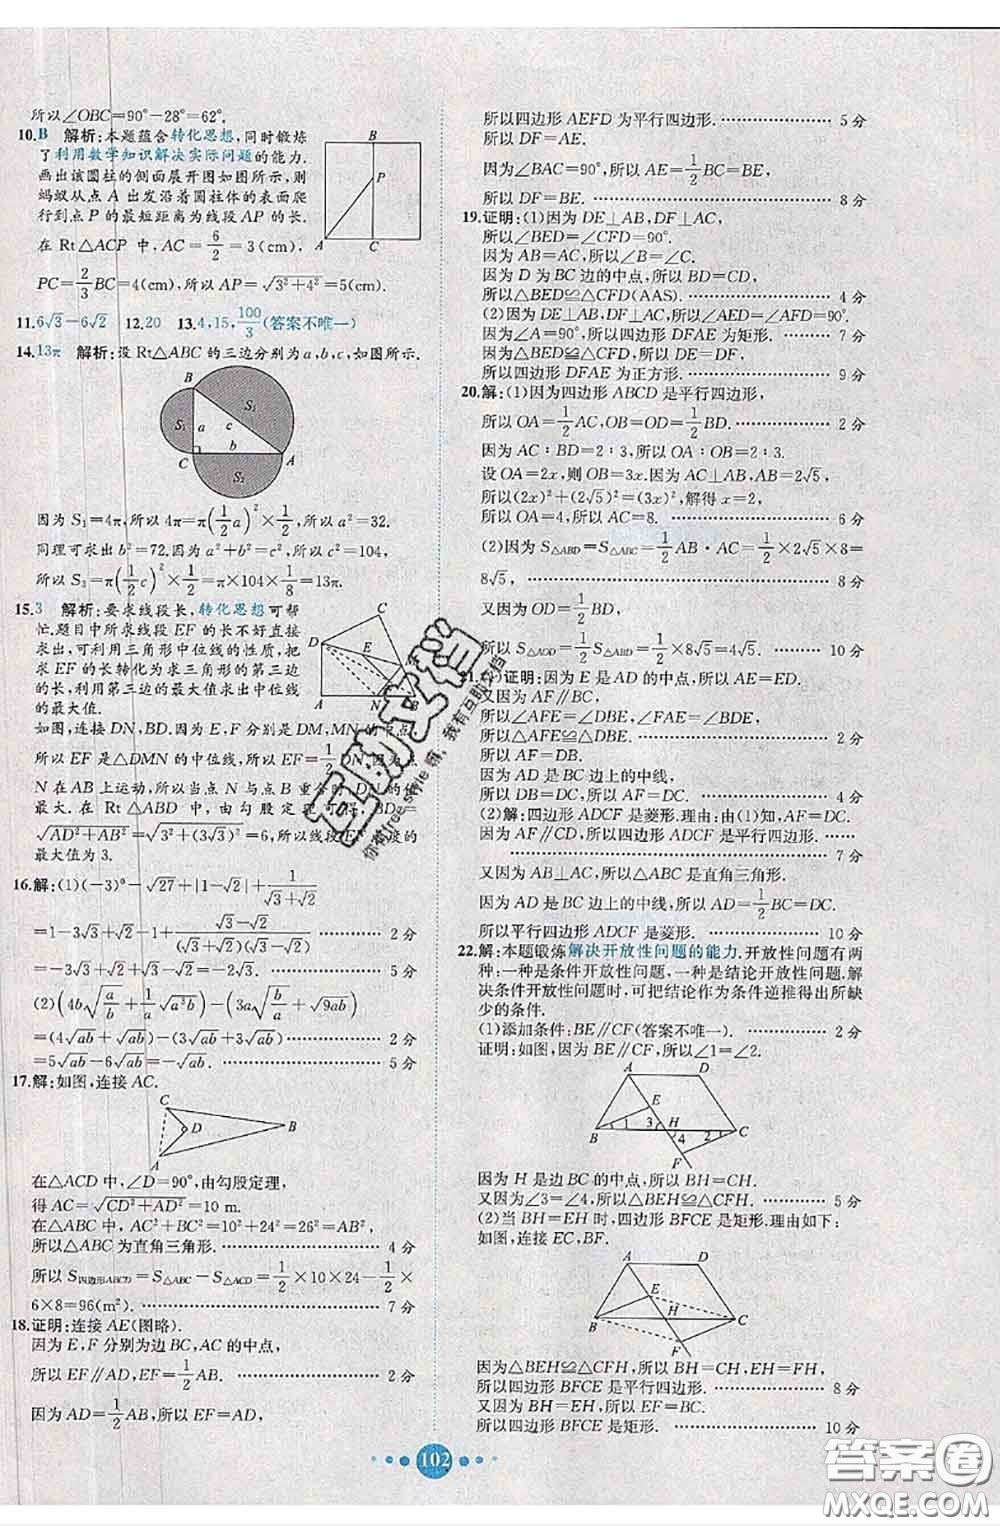 所以∠OBC=90°-28°=62°.
10.B 解析:本题蕴含转化思想,同时锻炼
了利用数学知识解决实际问题的能力.
画出该圆柱的侧面展开图如图所示,则
蚂蚁从点 A 出发沿着圆柱体的表面爬
行到点 P 的最短距离为线段 AP 的长.
在 Rt△ACP 中,AC=6/2=3(cm),
PC=2/3BC=4(cm),所以 AP=√(3²+4²)=5(cm).
B
P
A
C
11.6√3-6√2 12.20 13.4,15,100/3(答案不唯一)
14.13π 解析:设 Rt△ABC 的三边分别为 a,b,c,如图所示.
B
S₃
S₁ a c
b
C A
S₂
因为 S₁=4π,所以 4π=π(1/2a)²×1/2,所以 a²=32.
同理可求出 b²=72.因为 a²+b²=c²=104,
所以 S₃=π(1/2c)²×1/2=104π×1/8=13π.
15.3 解析:要求线段长,转化思想可帮
忙.题目中所求线段 EF 的长不好直接
求出,可利用三角形中位线的性质,把
求 EF 的长转化为求三角形的第三边
的长,利用第三边的最大值求出中位线
的最大值.
C
D
A N
如图,连接 DN,BD.因为 E,F 分别是 DM,MN 的中点,
所以 EF 是△DMN 的中位线,所以 EF=1/2DN.
N 在 AB 上运动,所以当点 N 与点 B 重合时,
最大.在 Rt△ABD 中,由勾股定理可得,BD=
√(AD²+AB²)=√(3²+(3√3)²)=6,所以线段 EF 长度的
最大值为 3.
16.解:(1)(-3)⁰-√27+|1-√2|+1/(√3+√2)
=1-3√3+√2-1+(√3-√2)/((√3+√2)(√3-√2)) 2 分
=-3√3+√2+√3-√2=-2√3. 5 分
(2)(4b√(a/b)+1/a√(a³b))-(3a√(b/a)+√(9ab))
=(4√ab+√ab)-(3√ab+3√ab) 2 分
=5√ab-6√ab=-√ab. 5 分
17.解:如图,连接 AC.
C
D B
A
在△ACD 中,∠D=90°,由勾股定理,
得 AC=√(CD²+AD²)=10 m.
在△ABC 中,AC²+BC²=10²+24²=26²=AB²,
所以△ABC 为直角三角形. 4 分
所以 S四边形ABCD=S△ABC-S△ACD=1/2×10×24-1/2×
6×8=96(m²). 7 分
18.证明:连接 AE(图略).
因为 E,F 分别为边 BC,AC 的中点,
所以 EF∥AD,EF=1/2AB. 2 分
因为 AD=1/2AB,所以 EF=AD,
所以四边形 AEFD 为平行四边形. 5 分
所以 DF=AE.
因为∠BAC=90°,所以 AE=1/2BC=BE.
所以 DF=BE. 8 分
19.证明:(1)因为 DE⊥AB,DF⊥AC,
所以∠BED=∠CFD=90°.
因为 AB=AC,所以∠B=∠C.
因为 D 为 BC 边的中点,所以 BD=CD,
所以△BED≌△CFD(AAS). 4 分
(2)因为 DE⊥AB,DF⊥AC,所以∠AED=∠AFD=90°.
因为∠A=90°,所以四边形 DFAE 为矩形. 7 分
因为△BED≌△CFD,所以 DE=DF,
所以四边形 DFAE 为正方形. 9 分
20.解:(1)因为四边形 ABCD 是平行四边形,
所以 OA=1/2AC,OB=OD=1/2BD. 2 分
因为 AC∶BD=2∶3,所以 OA∶OB=2∶3.
设 OA=2x,则 OB=3x.因为 AC⊥AB,AB=2√5,
所以(2x)²+(2√5)²=(3x)²,解得 x=2,
所以 OA=4,所以 AC=8. 6 分
(2)因为 S△ABD=S△ABC=1/2AB·AC=1/2×2√5×8=
8√5, 8 分
又因为 OD=1/2BD,
所以 S△AOD=1/2S△ABD=1/2×8√5=4√5. 10 分
证明:因为 E 是 AD 的中点,所以 AE=ED.
又因为 AF∥BC,
所以∠AFE=∠DBE,∠FAE=∠BDE,
所以△AFE≌△DBE, 2 分
所以 AF=DB.
因为 AD 是 BC 边上的中线,
所以 DB=DC,所以 AF=DC. 4 分
(2)解:四边形 ADCF 是菱形.理由:由(1)知,AF=DC.
因为 AF∥CD,所以四边形 ADCF 是平行四边形.
7 分
又因为 AB⊥AC,所以△ABC 是直角三角形.
因为 AD 是 BC 边上的中线,所以 AD=1/2BC=DC.
所以平行四边形 ADCF 是菱形. 10 分
22.解:本题锻炼解决开放性问题的能力.开放性问题有两
种:一种是条件开放性问题,一种是结论开放性问题.解
决条件开放性问题时,可把结论作为条件逆推得出所缺
少的条件.
(1)添加条件:BE∥CF(答案不唯一). 2 分
证明:如图,因为 BE∥CF,所以∠1=∠2.
A D
E
B 1 3 H 4 2 C
F
因为 H 是边 BC 的中点,所以 BH=CH.
又因为∠3=∠4,所以△BEH≌△CFH. 5 分
(2)当 BH=EH 时,四边形 BFCE 是矩形.理由如下:
如图,连接 EC,BF.
A D
E
B H C
F
因为△BEH≌△CFH,所以 BH=CH,EH=FH.
所以四边形 BFCE 是平行四边形. 8 分
又因为 BH=EH,所以 EF=BC.
所以四边形 BFCE 是矩形. 10 分
102
答案圈
MXQE.COM